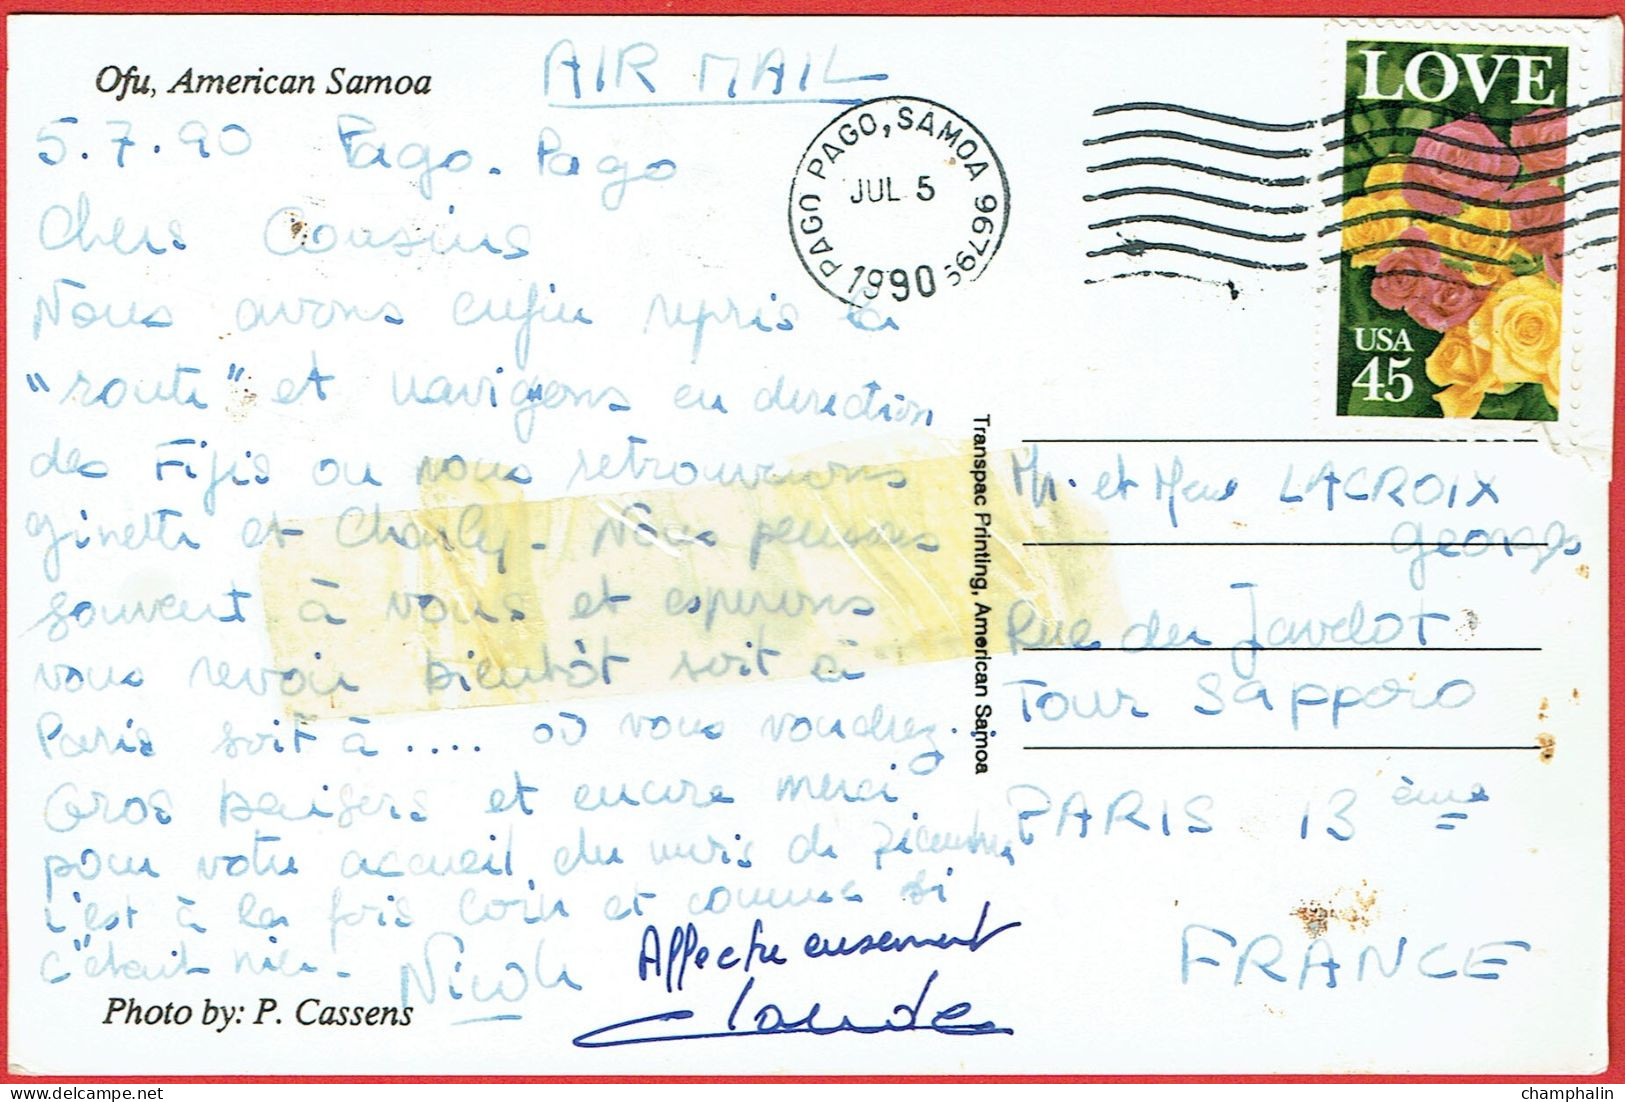 Ofu, American Samoa
AIR MAIL
5.7.90 Pago. Pago
Chers Cousins
Nous avons enfin repris la
"route" et navigons en direction
des Fijis ou nous retrouverons
ginette et Charly - Nous pensons
souvent à vous et esperons
vous revoir bientôt soit à
Paris soit à .... où vous voudrez..
Gros baisers et encore merci
pour votre accueil du mois de Décembre,
c'est à la fois loin et comme si
c'etait hier - Nicole
Affectueusement
Claude
Photo by: P. Cassens
PAGO PAGO, SAMOA 96799
JUL 5
1990
LOVE
USA
45
Transpac Printing, American Samoa
Mr. et Mme LACROIX
Georges
Rue du Javelot
Tour Sapporo
PARIS 13 ème
FRANCE
delcampe.net
champhalin